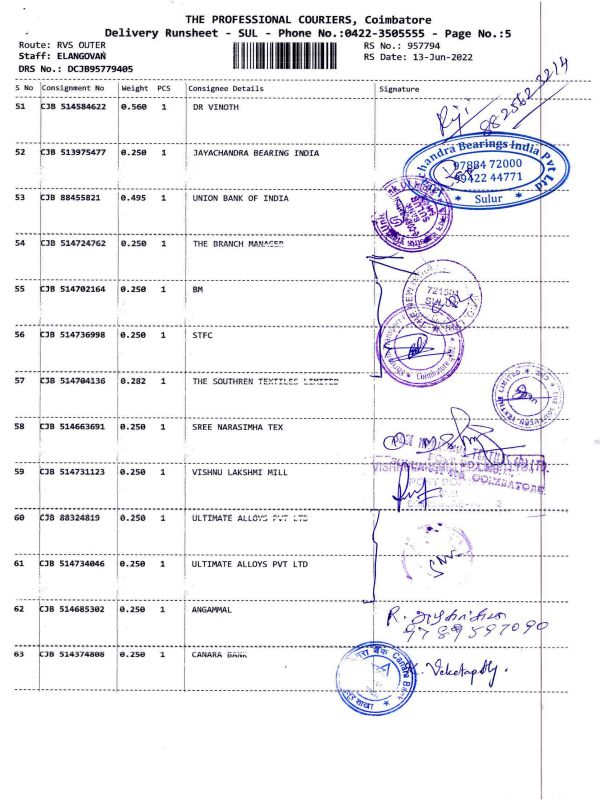 THE PROFESSIONAL COURIERS, Coimbatore
Delivery Runsheet - SUL - Phone No.:0422-3505555 - Page No.:5
Route: RVS OUTER RS No.: 957794
Staff: ELANGOVAN RS Date: 13-Jun-2022
DRS No.: DCJB95779405
S No Consignment No Weight PCS Consignee Details Signature
51 CJB 514584622 0.560 1 DR VINOTH
52 CJB 513975477 0.250 1 JAYACHANDRA BEARING INDIA
chandra Bearings India Pvt Ltd
97884 72000
99422 44771
* Sulur *
53 CJB 88455821 0.495 1 UNION BANK OF INDIA
SULUR
54 CJB 514724762 0.250 1 THE BRANCH MANAGER
55 CJB 514702164 0.250 1 BM
THE NEW
721501
SULUR
56 CJB 514736998 0.250 1 STFC
Coimbatore
57 CJB 514704136 0.282 1 THE SOUTHREN TEXTILES LIMITED
THE SOUTHERN TEXTILE LIMITED
58 CJB 514663691 0.250 1 SREE NARASIMHA TEX
59 CJB 514731123 0.250 1 VISHNU LAKSHMI MILL
COIMBATORE
60 CJB 88324819 0.250 1 ULTIMATE ALLOYS PVT LTD
61 CJB 514734046 0.250 1 ULTIMATE ALLOYS PVT LTD
62 CJB 514685302 0.250 1 ANGAMMAL
9789597090
63 CJB 514374808 0.250 1 CANARA BANK
Canara Bank